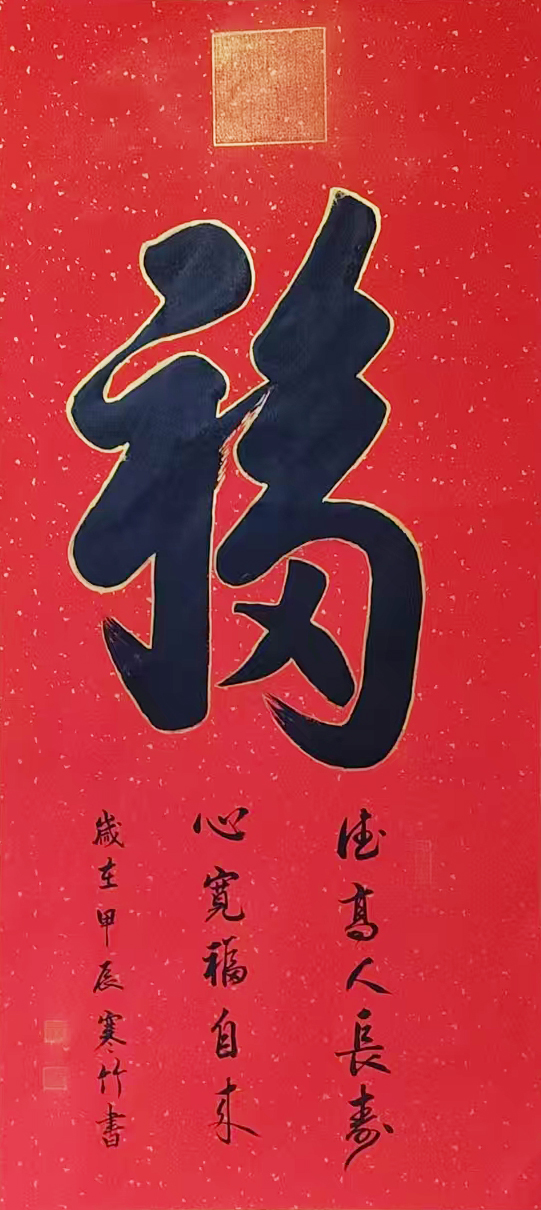 福
德高人長壽
心寬福自来
歲在甲辰寒竹書